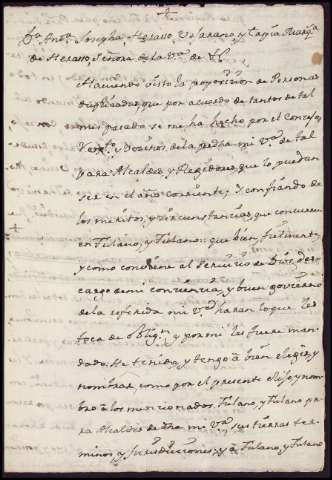 Dª Antª Josepha Herasso Velarano y Tapia Marqª
de Herasso, Señora de la vª de &ª
Haviendo visto la proposizion de Personas
duplicadas que por acuerdo de tantos de tal
mes pasado se me ha hecho por el Conzejo,
Vezºˢ y Dezinos de la dicha mi vª de tal
para Alcaldes, y Regidores que lo puedan
ser en el año corriente, y confiando de
los meritos, y circunstancias que concurren
en Fulano, y Fulano: que bien, fielmente,
y como conviene al servicio de Dios, des-
cargo de mi conciencia, y buen govierno
de la referida mi vª haran lo que les
toca de obligⁿ y por mi les fuere man-
dado. He tenido, y tengo á bien elegir, y
nombrar, como por el presente elijo y nom-
bro á los mencionados Fulano, y Fulano pa-
ra Alcaldes de dha mi vª, sus tierras ter-
minos, y jurisdicciones, y a Fulano, y Fulano